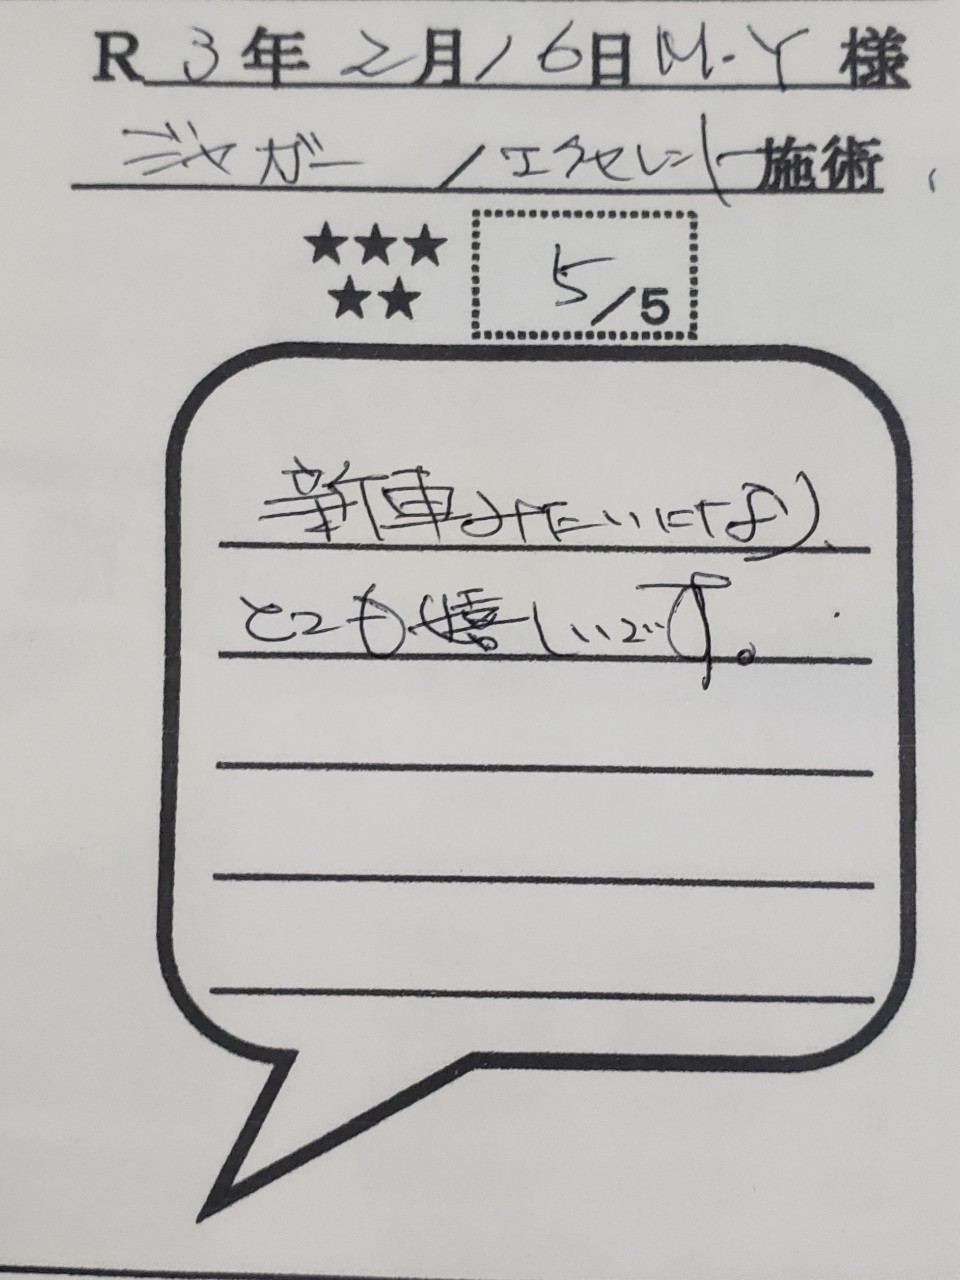 R 3年2月16日 M.Y 様
ジャガー / エクセレント施術
★★★
★★
5/5
新車みたいになり、
とても嬉しいです。